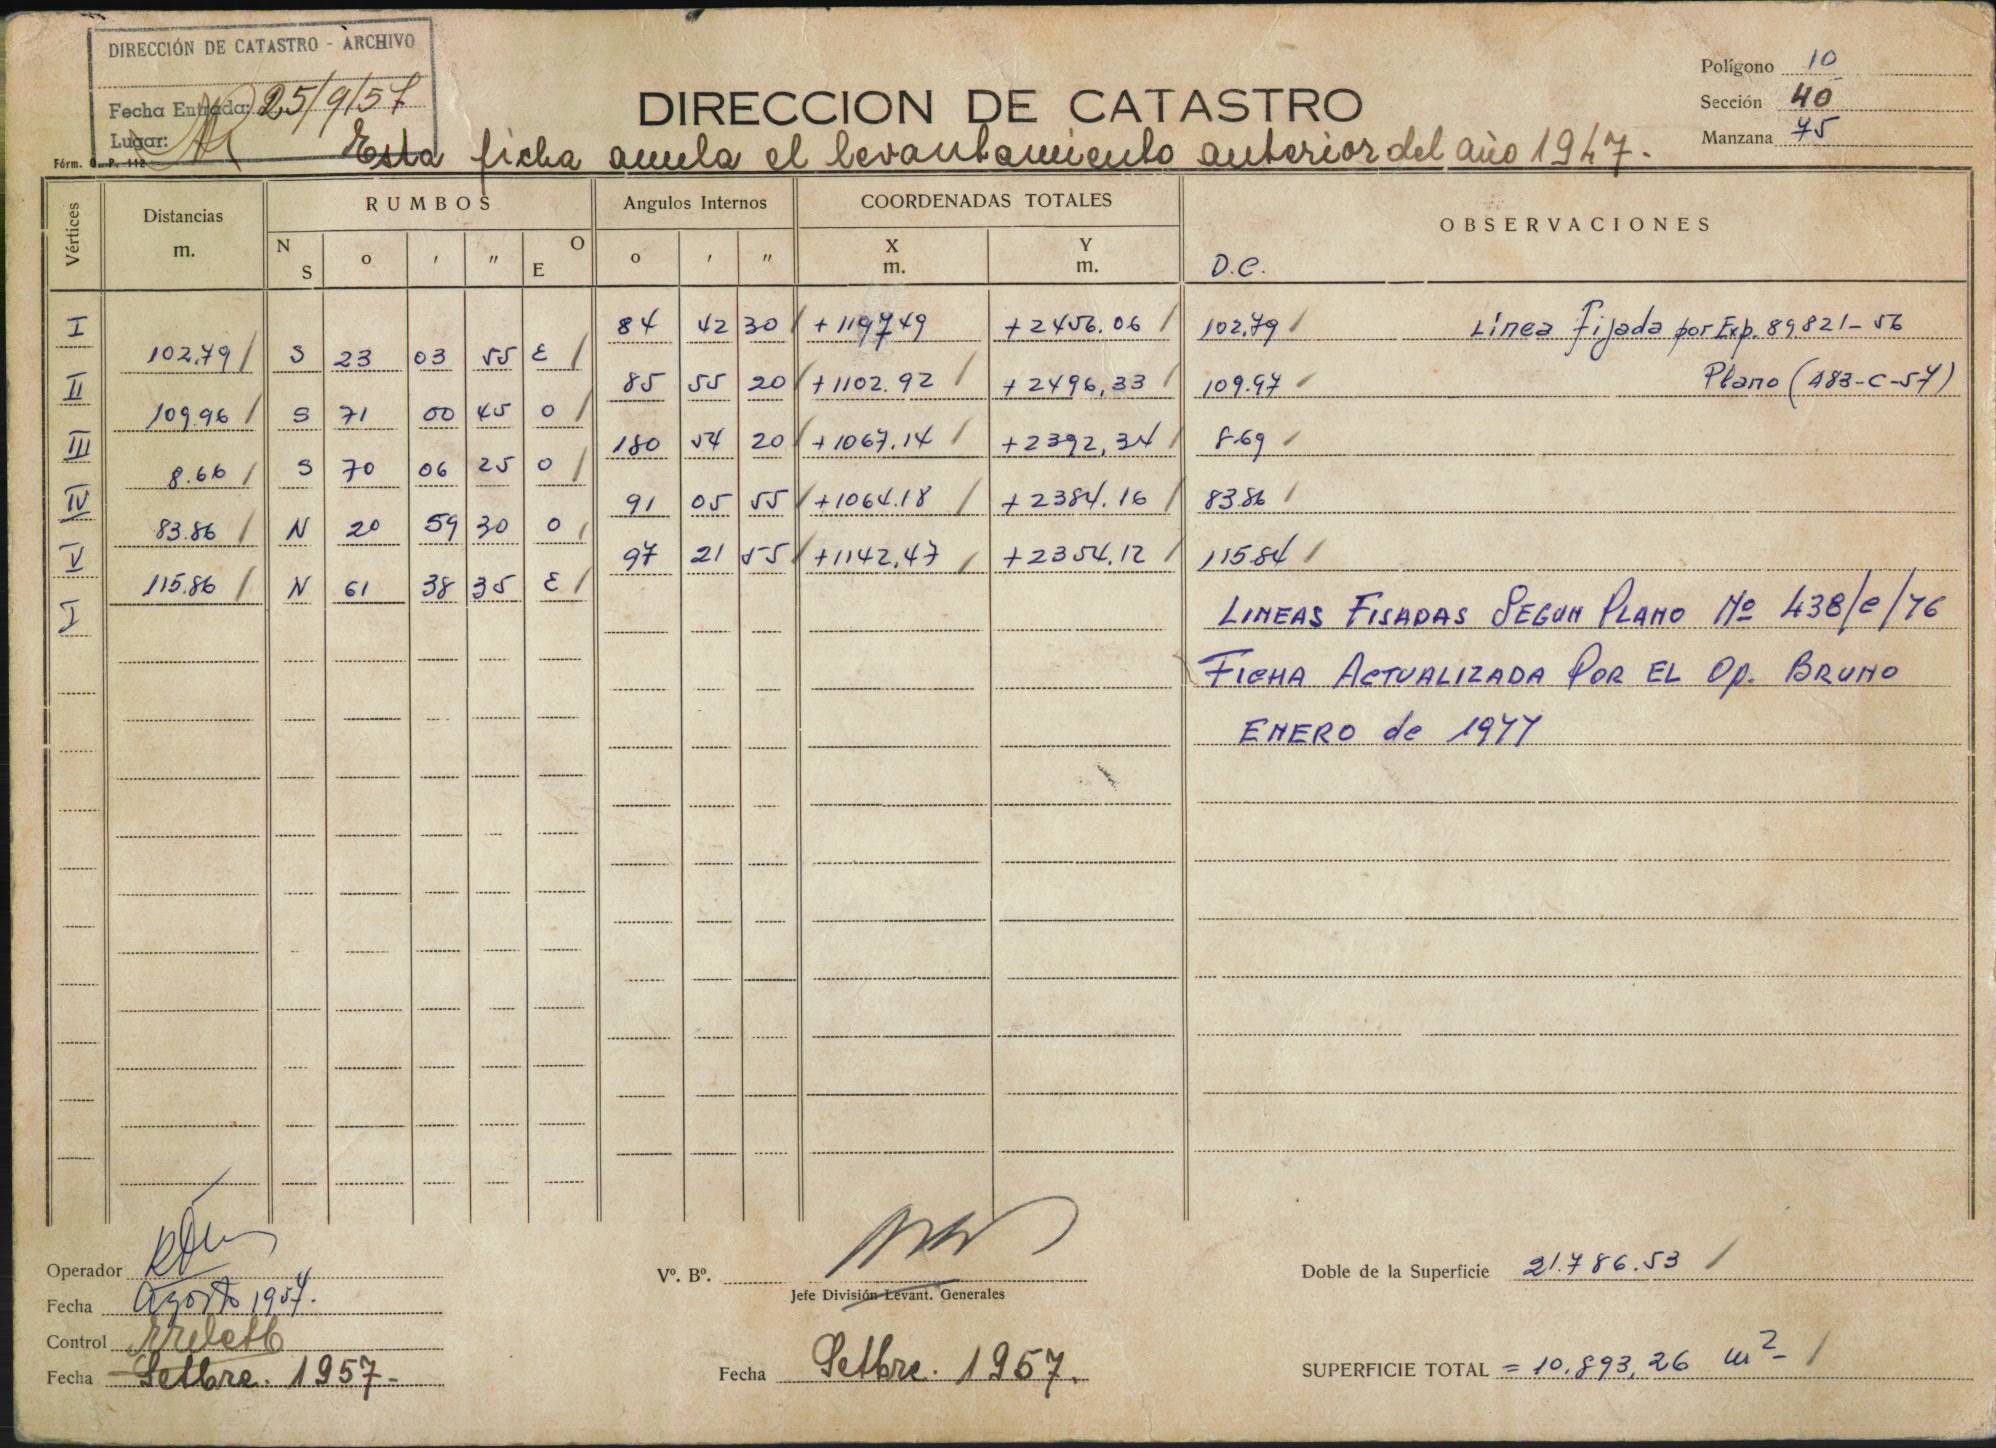 DIRECCIÓN DE CATASTRO - ARCHIVO
Fecha Entrada: 25/9/57
Lugar:
Fórm. O. P. 112
DIRECCION DE CATASTRO
Polígono 10
Sección 40
Manzana 75
Esta ficha anula el levantamiento anterior del año 1947.-
Vértices Distancias m. RUMBOS Angulos Internos COORDENADAS TOTALES OBSERVACIONES
N S o ' " O E o ' " X m. Y m. D.C.
I 84 42 30 +119749 +2456.06 102.79 Línea Fijada por Exp. 89821-56
102.79 S 23 03 55 E
II 85 55 20 +1102.92 +2496,33 109.97 Plano (483-C-57)
109.96 S 71 00 45 O
III 180 54 20 +1067.14 +2392,34 8.69
8.66 S 70 06 25 O
IV 91 05 55 +1064.18 +2384.16 83.86
83.86 N 20 59 30 O
V 97 21 55 +1142,47 +2354,12 115.84
115.86 N 61 38 35 E
I LINEAS FIJADAS SEGUN PLANO Nº 438/C/76
FICHA ACTUALIZADA POR EL Op. BRUNO
ENERO de 1977
Operador
Fecha Agosto 1957.
Control
Fecha Setbre. 1957-
Vº. Bº.
Jefe División Levant. Generales
Fecha Setbre. 1957.
Doble de la Superficie 21.786.53
SUPERFICIE TOTAL = 10.893,26 m2-